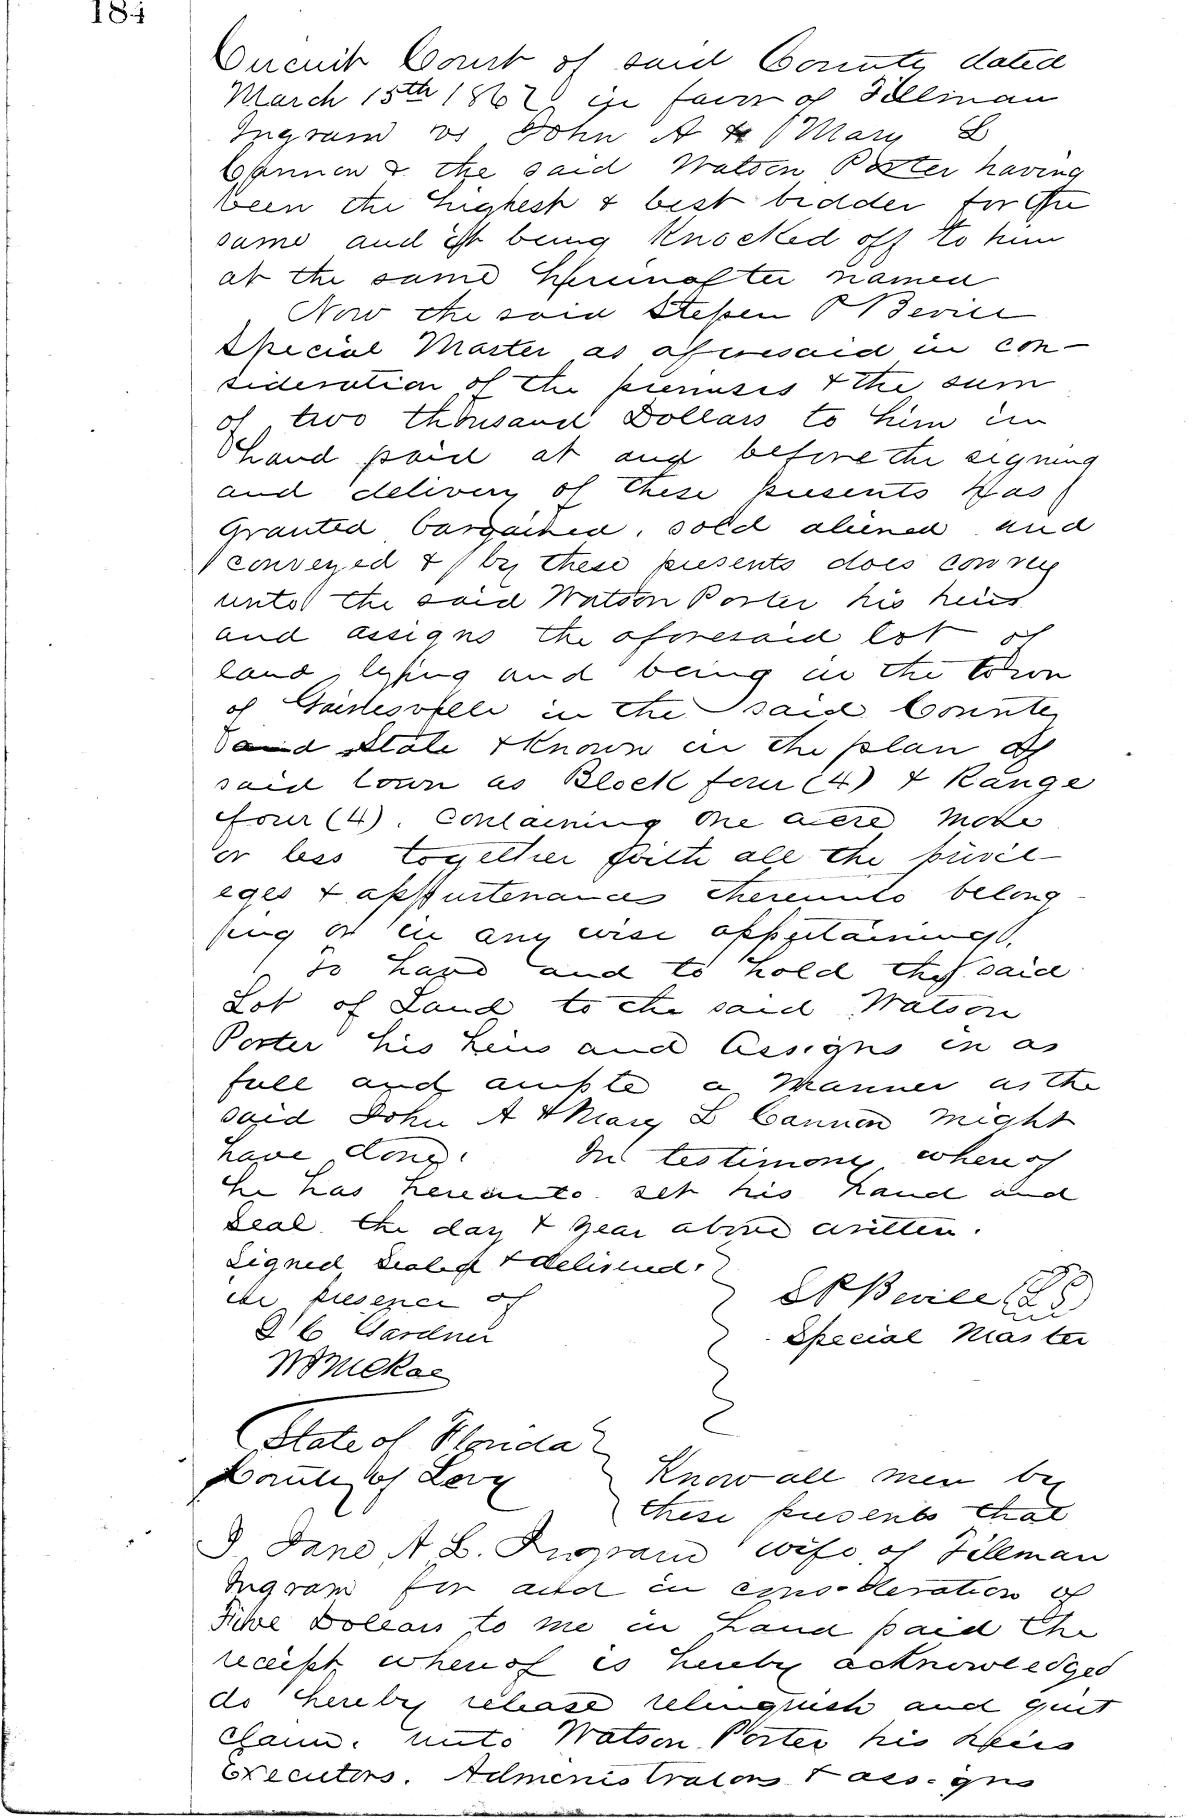 184
Circuit Court of said County dated
March 15th 1867 in favor of Tillman
Ingram vs John A & Mary L
Cannon & the said Watson Porter having
been the highest & best bidder for the
same and it being Knocked off to him
at the same hereinafter named
Now the said Stephen P Bevill
Special Master as aforesaid in con-
sideration of the premises & the sum
of two thousand Dollars to him in
hand paid at and before the signing
and delivery of these presents has
granted bargained, sold aliened and
conveyed & by these presents does convey
unto the said Watson Porter his heirs
and assigns the aforesaid lot of
land lying and being in the town
of Gainesville in the said County
and State & Known in the plan of
said town as Block four (4) & Range
four (4). containing one acre more
or less together with all the privil-
eges & appurtenances thereunto belong-
ing or in any wise appertaining.
To have and to hold the said
Lot of Land to the said Watson
Porter his heirs and Assigns in as
full and ample a manner as the
said John A & Mary L Cannon might
have done. In testimony whereof
he has hereunto set his hand and
Seal the day & year above written.
Signed Sealed & delivered.
in presence of S P Bevill (LS)
J C Gardner Special Master
McRae
State of Florida
County of Levy Know all men by
these presents that
I Jane A L. Ingram wife of Tillman
Ingram for and in consideration of
Five Dollars to me in hand paid the
receipt whereof is hereby acknowledged
do hereby release relinquish and quit
claim. unto Watson Porter his heirs
Executors. Administrators & assigns